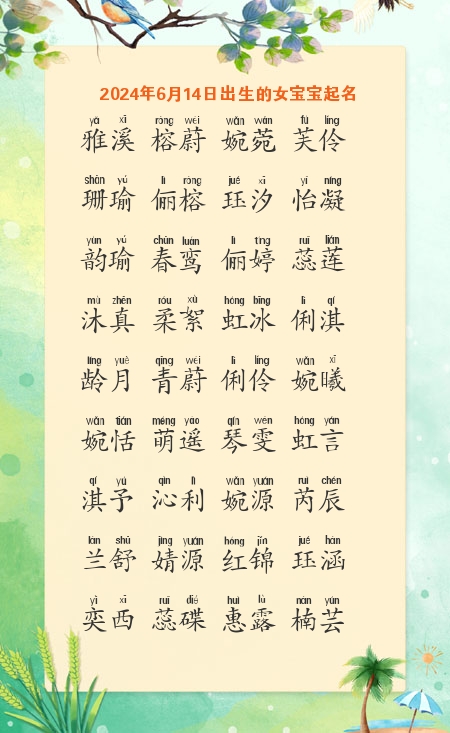 2024年6月14日出生的女宝宝起名
yǎ xī róng wèi wǎn wǎn fú líng
雅溪 榕蔚 婉菀 芙伶
shān yú lì róng jué xī yí níng
珊瑜 俪榕 珏汐 怡凝
yùn yú chūn luán lì tíng ruǐ lián
韵瑜 春鸾 俪婷 蕊莲
mù zhēn róu xù hóng bīng lì qí
沐真 柔絮 虹冰 俐淇
líng yuè qīng wèi lì líng wǎn xī
龄月 青蔚 俐伶 婉曦
wǎn tián méng yáo qín wén hóng yán
婉恬 萌遥 琴雯 虹言
qí yú qìn lì wǎn yuán ruì chén
淇予 沁利 婉源 芮辰
lán shū jìng yuán hóng jǐn jué hán
兰舒 婧源 红锦 珏涵
yì xī ruǐ dié huì lù nán yún
奕西 蕊碟 惠露 楠芸